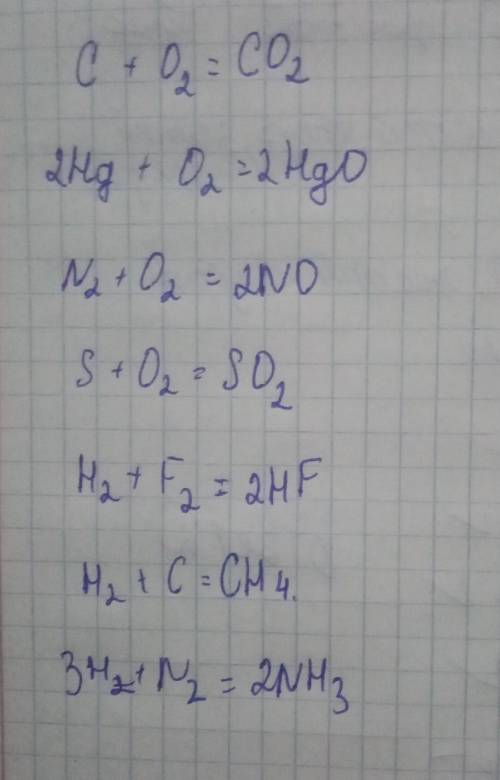 C + O₂ = CO₂
2Hg + O₂ = 2HgO
N₂ + O₂ = 2NO
S + O₂ = SO₂
H₂ + F₂ = 2HF
H₂ + C = CH₄.
3H₂ + N₂ = 2NH₃